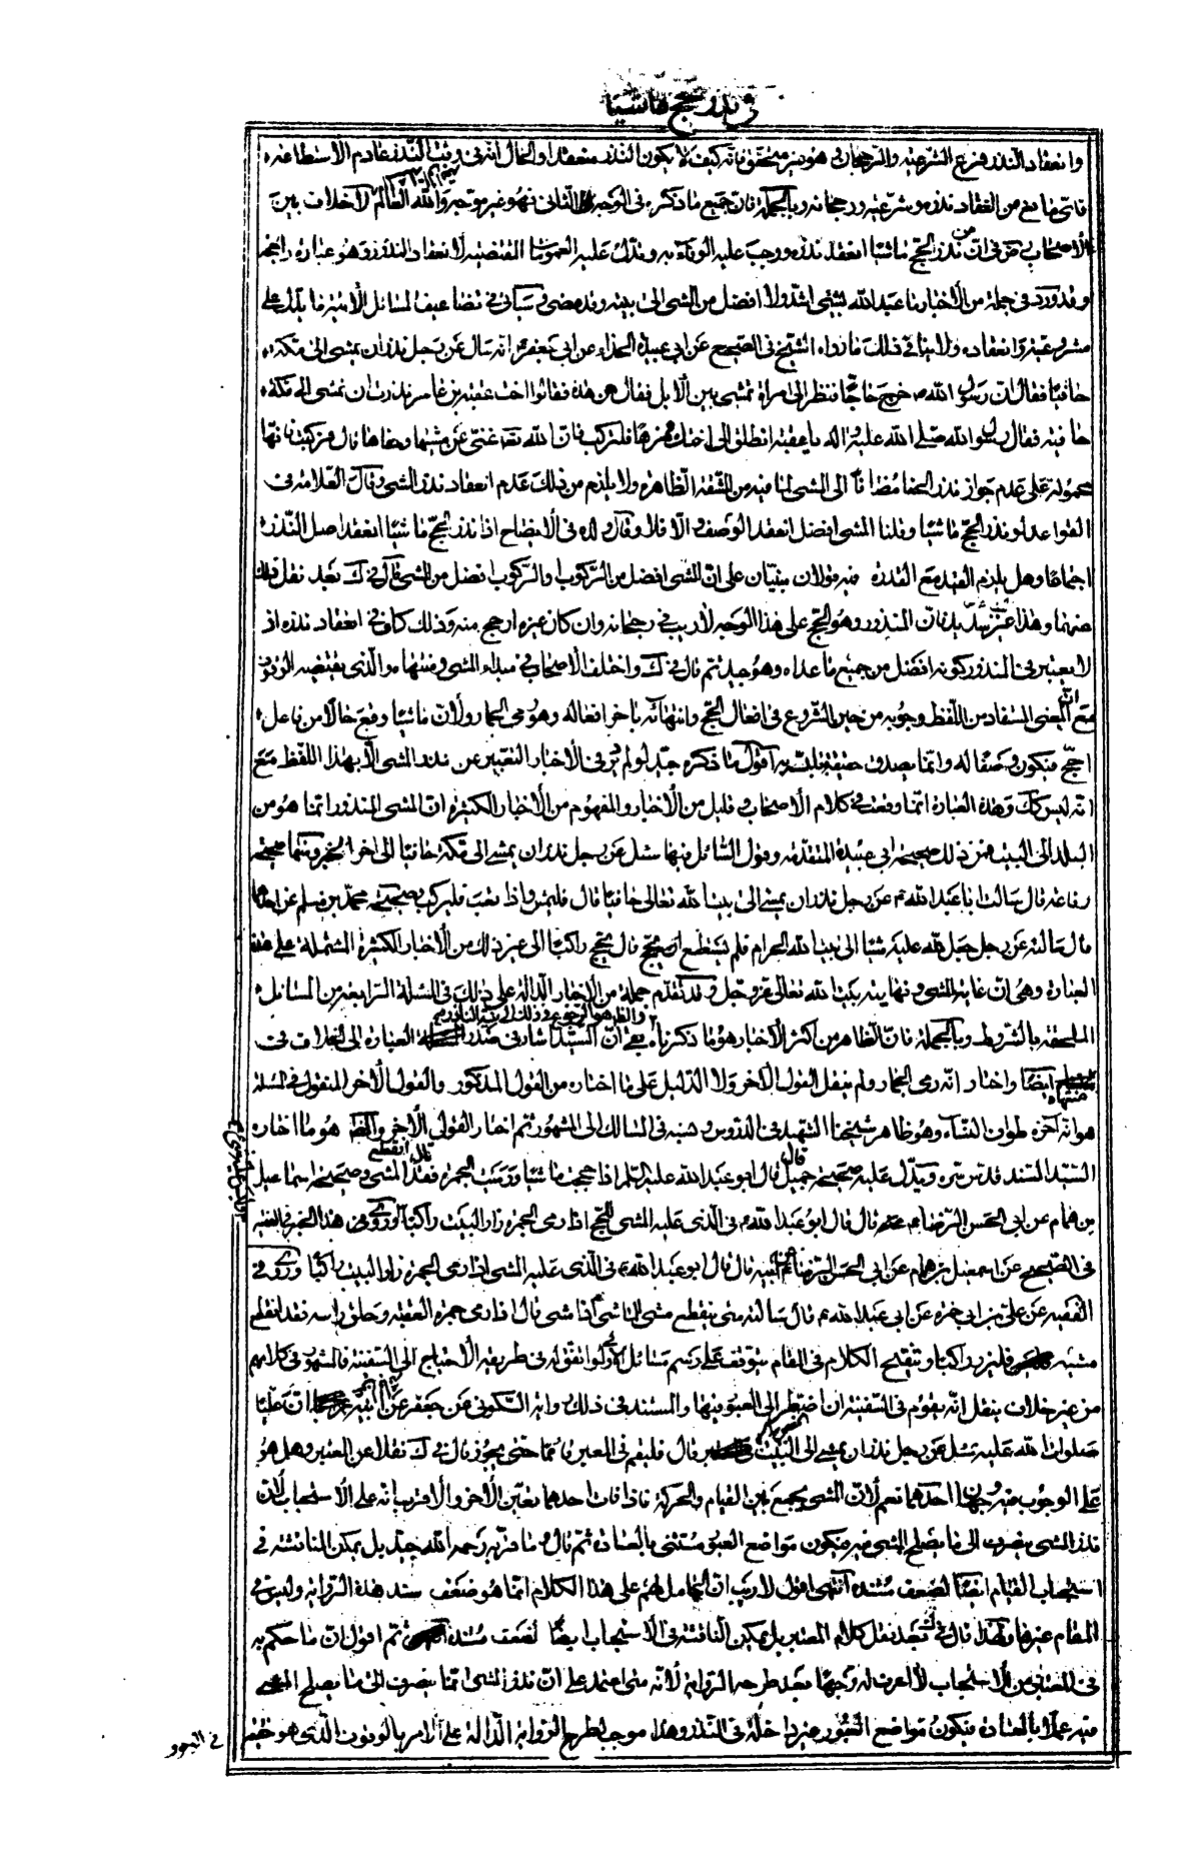 في نذر الحج ماشيا
وانعقاد النذر فرع الشرعية والرجحان هو غير متحقق فانه كيف لا يكون النذر منعقدا والحال انه في وقت النذر عادم الاستطاعة
فاي مانع من انعقاد نذره وشرعيته ورجحانه وبالجملة فان جميع ما ذكره في الوجه الثاني فهو غير موجه والله العالم لا خلاف بين
الاصحاب رض في ان من نذر الحج ماشيا انعقد نذره ووجب عليه الوفاء به وتدل عليه العمومات المقتضية لانعقاد النذر وهو عبادة راجحة
وقد ورد في جملة من الاخبار ما عبد الله بشيء اشد ولا افضل من المشي الى بيته وقد مضى وسيأتي في تضاعيف المسائل الاتية ما يدل على
مشروعيته وانعقاده ولا ينافي ذلك ما رواه الشيخ في الصحيح عن ابي عبيدة الحذاء عن ابي جعفر انه سال عن رجل نذر ان يمشي الى مكة
حافيا فقال ان رسول الله ص خرج حاجا فنظر الى امراة تمشي بين الابل فقال من هذه فقالوا اخت عقبة بن عامر نذرت ان تمشي الى مكة
حافية فقال رسول الله صلى الله عليه واله يا عقبة انطلق الى اختك فمرها فلتركب فان الله تعا غني عن مشيها وحفاها قال فركبت فانها
محمولة على عدم جواز نذر الحفا مضافا الى المشي لما فيه من المشقة الظاهرة ولا يلزم من ذلك عدم انعقاد نذر المشي وقال العلامة في
القواعد لو نذر الحج ماشيا وقلنا المشي افضل انعقد الوصف والا فلا وقال ولده في الايضاح اذا نذر الحج ماشيا انعقد اصل النذر
اجماعا وهل يلزم القيد مع القدرة فيه قولان مبنيان على ان المشي افضل من الركوب او الركوب افضل من المشي قال في ك بعد نقل ذلك
عنهما وهذا غير سديد فان المنذور وهو الحج على هذا الوجه لا ريب في رجحانه وان كان غيره ارجح منه وذلك كاف في انعقاد نذره اذ
لا يعتبر في المنذور كونه افضل من جميع ما عداه وهو جيد ثم قال في ك واختلف الاصحاب في مبداء المشي ومنتهاه والذي يقتضيه الوقوف
مع المعنى المستفاد من اللفظ وجوبه من حين الشروع في افعال الحج وانتهائه باخر افعاله وهو رمي الجمار ولان ماشيا وقع حالا من فاعل
احج فيكون وصفا له وانما يصدق حقيقة بتلبسه به اقول ما ذكره جيد لو لم يرد في الاخبار التعبير عن نذر المشي الا بهذا اللفظ مع
انه ليس كك وهذه العبارة انما وقعت في كلام الاصحاب وفي قليل من الاخبار والمفهوم من الاخبار الكثيرة ان المشي المنذور انما هو من
البلد الى البيت فمن ذلك صحيحة ابي عبيدة المتقدمة وقول السائل فيها سئل عن رجل نذر ان يمشي الى مكة حافيا الى اخر الخبر ومنها صحيحة
رفاعة قال سالت ابا عبد الله ع عن رجل نذر ان يمشي الى بيت الله تعالى حافيا قال فليمش واذا تعب فليركب وصحيحة محمد بن مسلم عن احدهما
قال سالته عن رجل جعل لله عليه مشيا الى بيت الله الحرام فلم يستطع ان يحج قال يحج راكبا الى غير ذلك من الاخبار الكثيرة المشتملة على هذه
العبارة وهي ان غاية المشي ونهايته بيت الله تعالى عز وجل وقد تقدم جملة من الاخبار الدالة على ذلك في المسئلة الرابعة من المسائل
الملحقة بالشروط وبالجملة فان الظاهر من اكثر الاخبار هو ما ذكرناه بقي ان السيد اشار في صدر العبارة الى الخلاف في
منتهاه ايضا واختار انه رمي الجمار ولم ينقل القول الاخر ولا الدليل على ما اختاره من القول المذكور والقول الاخر المنقول في المسئلة
هو انه اخره طواف النساء وهو ظاهر شيخنا الشهيد في الدروس ونسبه في المسالك الى المشهور ثم اختار القول الاخر والظ هو ما اختاره
السيد السند قدس سره ويدل عليه صحيحة جميل قال قال ابو عبد الله عليه السلم اذا حججت ماشيا ورميت الجمرة فقد انقطع المشي وصحيحة اسماعيل
بن همام عن ابي الحسن الرضا ع قال قال ابو عبد الله ع في الذي عليه المشي للحج اذا رمى الجمرة زار البيت راكبا وروى هذا الخبر في الفقيه
في الصحيح عن اسمعيل بن همام عن ابي الحسن الرضا عن ابيه قال قال ابو عبد الله ع في الذي عليه المشي اذا رمى الجمرة زار البيت راكبا وروى في
الفقيه عن علي بن ابي حمزة عن ابي عبد الله ع قال سالته متى ينقطع مشي الماشي قال اذا رمى جمرة العقبة وحلق راسه فقد انقطع
مشيه فليزر راكبا وتنقيح الكلام في المقام يتوقف على رسم مسائل الاولى لو اتفق له في طريقه الاحتياج الى السفينة فالمشهور في كلامهم
من غير خلاف ينقل انه يقوم في السفينة ان اضطر الى العبور فيها والمستند في ذلك رواية السكوني عن جعفر عن ابيه عن آبائه ان عليا
صلوات الله عليه سئل عن رجل نذر ان يمشي الى البيت فمر قال فليقم في المعبر قائما حتى يجوز قال في ك نقلا عن المعتبر وهل هو
على الوجوب فيه وجهان احدهما نعم لان المشي يجمع بين القيام والحركة فاذا فات احدهما تعين الاخر والاقرب انه على الاستحباب لان
نذر المشي ينصرف الى ما يصلح المشي فيه فيكون مواضع العبور مستثنى بالعادة ثم قال وما قربه رحمه الله جيد بل يمكن المناقشة في
استحباب القيام ايضا لضعف مستنده انتهى اقول لا ريب ان الحامل لهم على هذا الكلام انما هو ضعف سند هذه الرواية وليس في
المقام غيرها ولهذا قال في ك بعد نقل كلام المعتبر بل يمكن المناقشة في الاستحباب ايضا لضعف مستنده ثم اقول ان ما حكم به
في المعتبر من الاستحباب لا اعرف له وجها بعد طرحه الرواية لانه متى اعتمد على ان نذر المشي انما ينصرف الى ما يصلح المشي
فيه عملا بالعادة فيكون مواضع العبور غير داخلة في النذر وهذا موجب لطرح الرواية الدالة على الامر بالوقوف الذي هو حقيقة